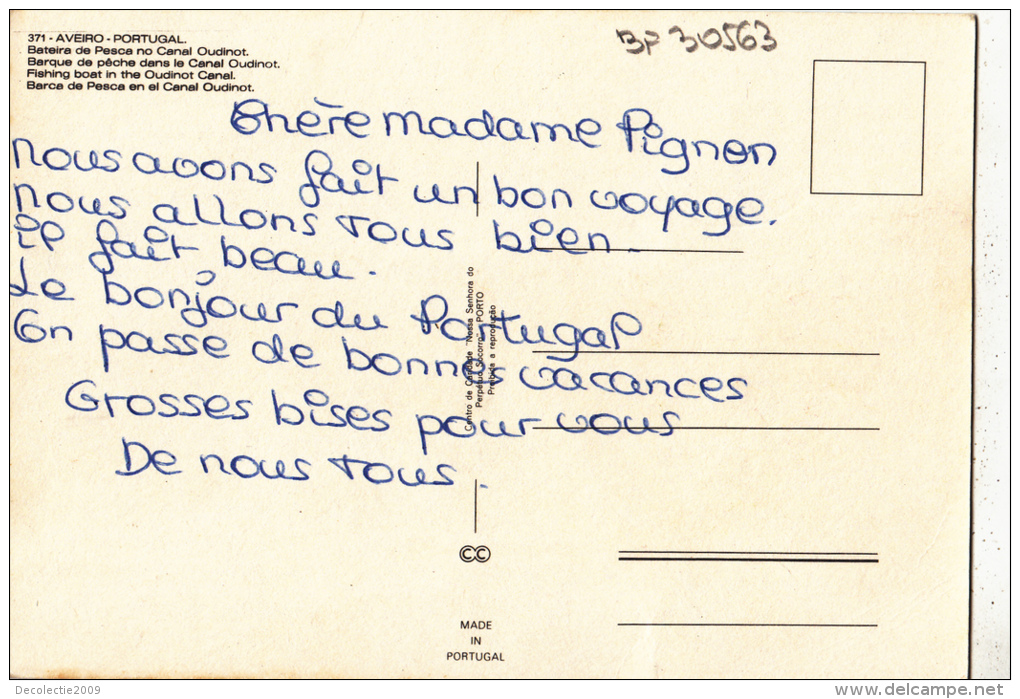 371 - AVEIRO - PORTUGAL.
Bateira de Pesca no Canal Oudinot.
Barque de pêche dans le Canal Oudinot.
Fishing boat in the Oudinot Canal.
Barca de Pesca en el Canal Oudinot.
BP 30563
Chère madame Pignon
nous avons fait un bon voyage.
nous allons tous bien.
il fait beau.
Le bonjour du Portugal
On passe de bonnes vacances
Grosses bises pour vous
De nous tous.
Centro de Caridade "Nossa Senhora do
Perpétuo Socorro" - PORTO
Proibida a reprodução
CC
MADE
IN
PORTUGAL
Decolectie2009
www.delcampe.net